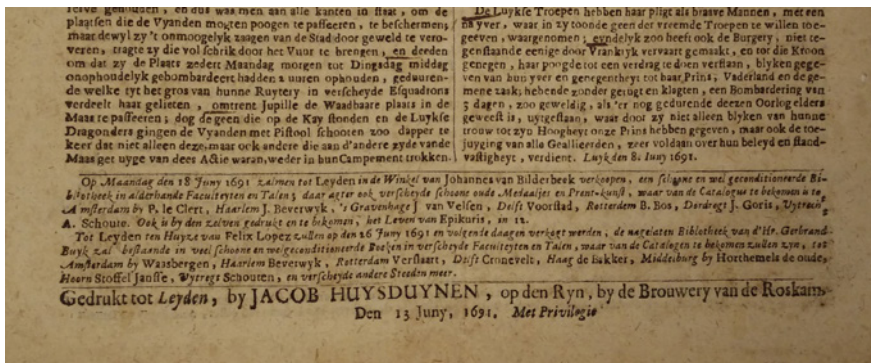 plaatsen die de Vyanden mogten poogen te passeeren, te beschermen;
maar dewyl zy 't onmoogelyk zaagen van de Stad door geweld te vero-
veren, tragte zy die vol schrik door het Vuur te brengen, en deeden
om dat zy de Plaats zedert Maandag morgen tot Dingsdag middag
onophoudelyk gebombardeert hadden 2 uuren ophouden, geduuren-
de welke tyt het gros van hunne Ruytery in verscheyde Esquadrons
verdeelt haat gelieten, omtrent Jupille de Waadbaare plaats in de
Maas te passeeren; dog de geen die op de Kay stonden en de Luykse
Dragonders gingen de Vyanden met Pistool schooten zoo dapper te
keer dat niet alleen deze, maar ook andere die aan d'andere zyde van de
Maas get uyge van dees Actie waran, weder in hun Campement trokken.
De Luykse Troepen hebben haar pligt als braave Mannen, met een
na yver, waar in zy toonde geen der vreemde Troepen te willen toe-
geeven, waargenomen; eyndelyk zoo heeft ook de Burgery, niet te-
genstaande eenige door Vrankryk vervaart gemaakt, en tot die Kroon
genegen, haar poogde tot een verdrag te doen verstaan, blyken gege-
ven van hun yver en genegentheyt tot haar Prins, Vaderland en de ge-
mene zaak; hebende zonder gerugt en klagten, een Bombardering van
3 dagen, zoo geweldig, als 'er nog gedurende deezen Oorlog elders
geweest is, uytgestaan, waar door zy niet alleen blyken van hunne
trouw tot zyn Hoogheyt onze Prins hebben gegeven, maar ook de toe-
juyging van alle Gealliëerden, zeer voldaan over hun beleyd en stand-
vastigheyt, verdient. Luyk den 8. Juny 1691.
Op Maandag den 18 Juny 1691 zal men tot Leyden in de Winkel van Johannes van Bilderbeek verkoopen, een schoone en wel geconditioneerde Bi-
bliotheek in alderhande Faculteyten en Talen; daar agter ook verscheyde schoone oude Medaaljes en Prent-kunst, waar van de Catalogus te bekomen is te
Amsterdam by P. le Clert, Haarlem J. Beverwyk, 's Gravenhage J van Velsen, Delft Voorstad, Rotterdam B. Bos, Dordregt J. Goris, Uytregt
A. Schoute. Ook is by den zelven gedrukt en te bekomen, het Leven van Epikuris, in 12.
Tot Leyden ten Huyze van Felix Lopez zullen op den 26 Juny 1691 en volgende daagen verkogt werden, de nagelaten Bibliotheek van d'Hr. Gerbrand
Buyk zal. bestaande in veel schoone en welgeconditioneerde Boeken in verscheyde Faculteyten en Talen, waar van de Catalogen te bekomen zullen zyn, tot
Amsterdam by Waasbergen, Haarlem Beverwyk, Rotterdam Verstaart, Delft Cronevelt, Haag de Bakker, Middelburg by Horthemels de oude,
Hoorn Stoffel Jansse, Uytregt Schouten, en verscheyde andere Steeden meer.
Gedrukt tot Leyden, by JACOB HUYSDUYNEN, op den Ryn, by de Brouwery van de Roskam.
Den 13 Juny, 1691. Met Privilegie